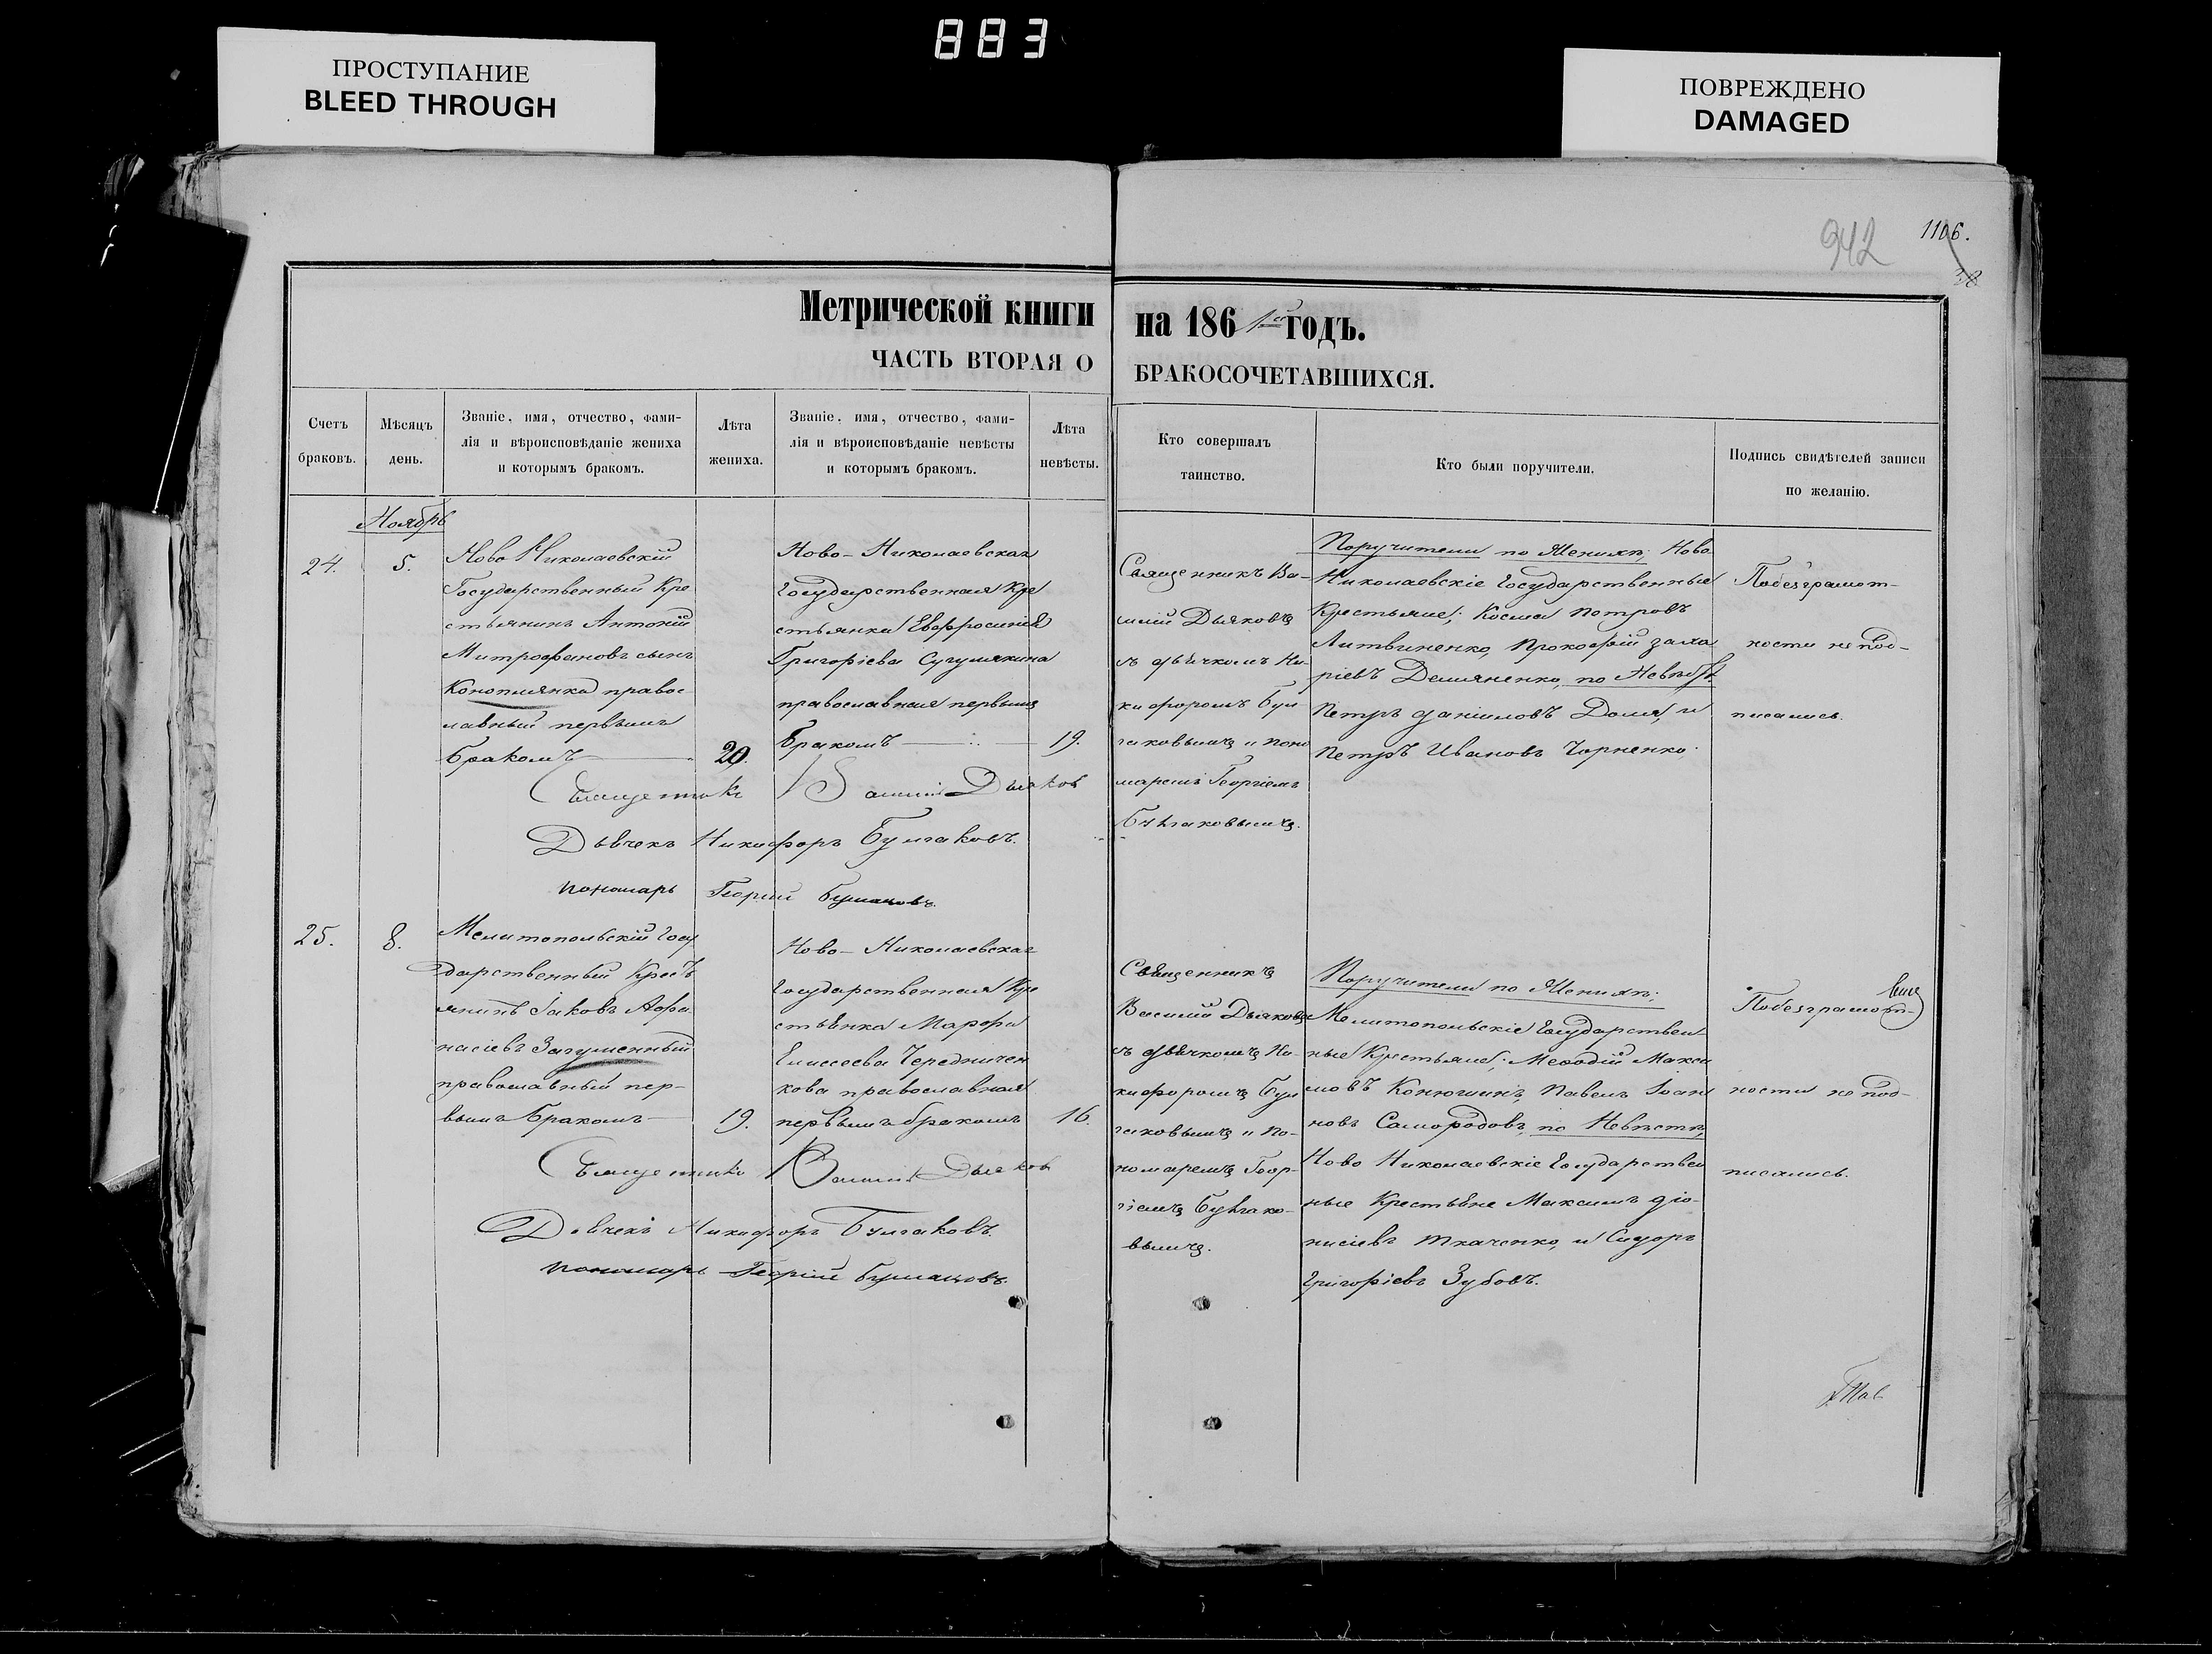 883
ПРОСТУПАНИЕ
BLEED THROUGH
ПОВРЕЖДЕНО
DAMAGED
942
1106.
38
Метрической книги на 1861й годъ.
ЧАСТЬ ВТОРАЯ О БРАКОСОЧЕТАВШИХСЯ.
Счетъ
браковъ.
Мѣсяцъ
день.
Званіе, имя, отчество, фами-
лія и вѣроисповѣданіе жениха
и которымъ бракомъ.
Лѣта
жениха.
Званіе, имя, отчество, фами-
лія и вѣроисповѣданіе невѣсты
и которымъ бракомъ.
Лѣта
невѣсты.
Кто совершалъ
таинство.
Кто были поручители.
Подпись свидѣтелей записи
по желанію.
Ноябрь
24.
5.
Ново Николаевскій
Государственный Кре
стьянинъ Антоній
Митрофановъ сынъ
Коноплянка правос
лавный первымъ
бракомъ
20.
Ново-Николаевская
Государственная Кре
стьянка Евфросинія
Григоріева Сугулякина
православная первымъ
бракомъ
19.
Священникъ Ва-
силій Дьяковъ
съ дьячкомъ Ни-
кифоромъ Бул
гаковымъ и поно
маремъ Георгіемъ
Булгаковымъ.
Поручители по Женихѣ; Ново
Николаевскіе Государственные
Крестьяне; Косма Петровъ
Литвиненко, Прокофій Заха
ріевъ Демяненко, по Невѣстѣ
Петръ Даніиловъ Доля, и
Петръ Ивановъ Чорненко.
Побезграмот-
ности не под-
писались.
Священникъ Василій Дьяковъ
Дьячекъ Никифоръ Булгаковъ.
Пономарь Георгій Булгаковъ.
25.
8.
Мелитопольскій Госу
дарственный Крест
янинъ Іаковъ Афа
насіевъ Загуменный
православный пер-
вымъ бракомъ
19.
Ново-Николаевская
Государственная Кре
стьянка Марфа
Елисеева Чередничен
кова православная
первымъ бракомъ
16.
Священникъ
Василій Дьяковъ
съ дьячкомъ Ни-
кифоромъ Бул
гаковымъ и по-
номаремъ Геор-
гіемъ Булгако-
вымъ.
Поручители по Женихѣ;
Мелитопольскіе Государствен
ные Крестьяне; Меѳодій Макси
мовъ Конюшинъ, Павелъ Іоан
новъ Самородовъ, по Невѣстѣ,
Ново Николаевскіе Государствен
ные Крестьяне Максимъ Діо-
нисіевъ Ткаченко, и Сидоръ
Григоріевъ Зубовъ.
Побезграмот-
ности не под-
писались.
Священникъ Василій Дьяковъ
Дьячекъ Никифоръ Булгаковъ.
Пономарь Георгій Булгаковъ.